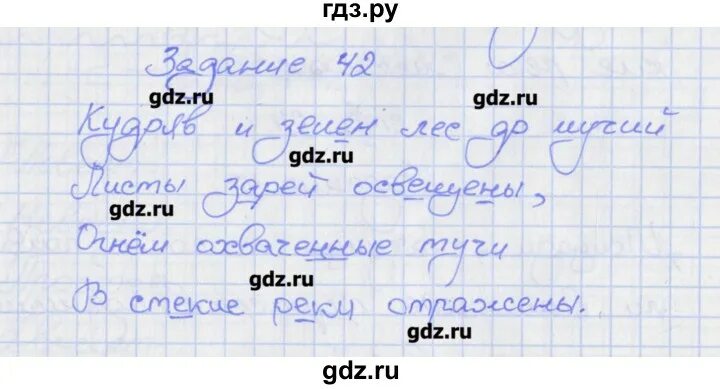 гдз.ру
Задание 42
gdz.ru gdz.ru
Кудряв и зелен лес дремучий
gdz.ru
Листы зарей освещены,
gdz.ru
Огнём охваченные тучи
gdz.ru
В стекие реки отражены.
gdz.ru
gdz.ru